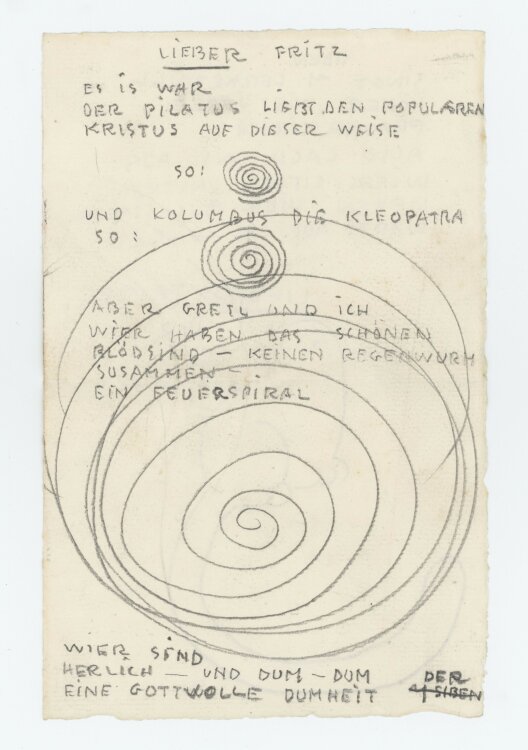 LIEBER FRITZ
ES IS WAR
DER PILATUS LIEBT DEN POPULÆREN
KRISTUS AUF DIESER WEISE
SO:
UND KOLUMBUS DIE KLEOPATRA
SO:
ABER GRETL UND ICH
WIER HABEN DAS SCHÖNEN
BLÖDSIND – KEINEN REGENWURM
SUSAMMEN –
EIN FEUERSPIRAL
WIER SIND
HERLICH – UND DUM – DUM
EINE GOTTWOLLE DUMHEIT
DER
SIBEN